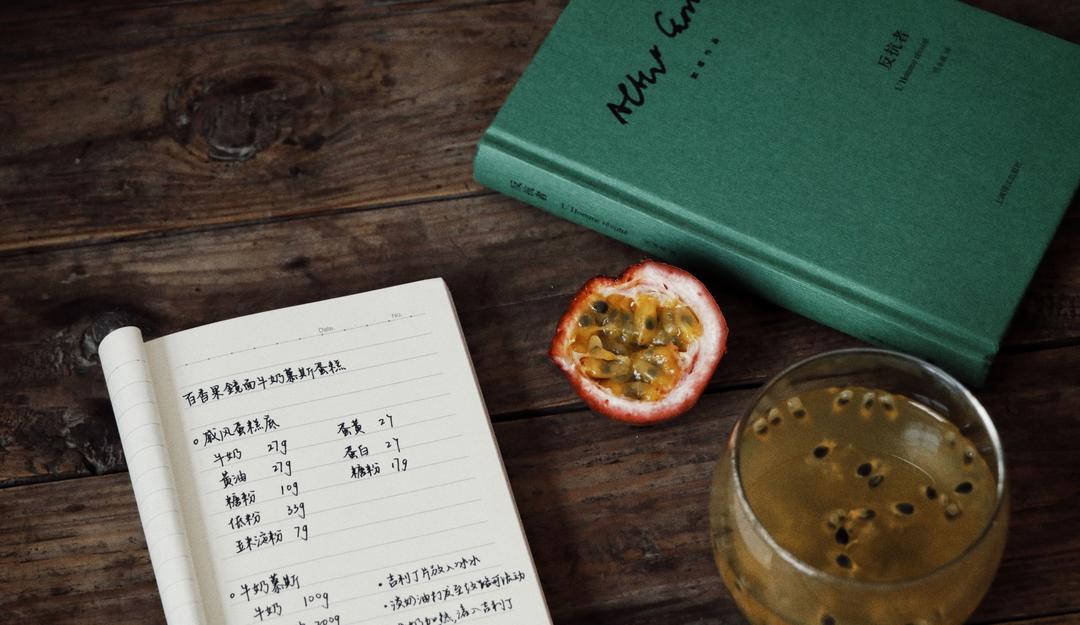 Albert Cam
加缪作品
反抗者
L'Homme révolté
上海译文出版社
反抗者
L'Homme révolté
Date.
No.
百香果鏡面牛奶慕斯蛋糕
戚风蛋糕底
牛奶 27g
黄油 27g
糖粉 10g
低粉 33g
玉米淀粉 7g
蛋黄 2个
蛋白 2个
糖粉 17g
牛奶慕斯
牛奶 100g
200g
·吉利丁片放入冰水
·淡奶油打发至纹路可流动
加热,溶入吉利丁